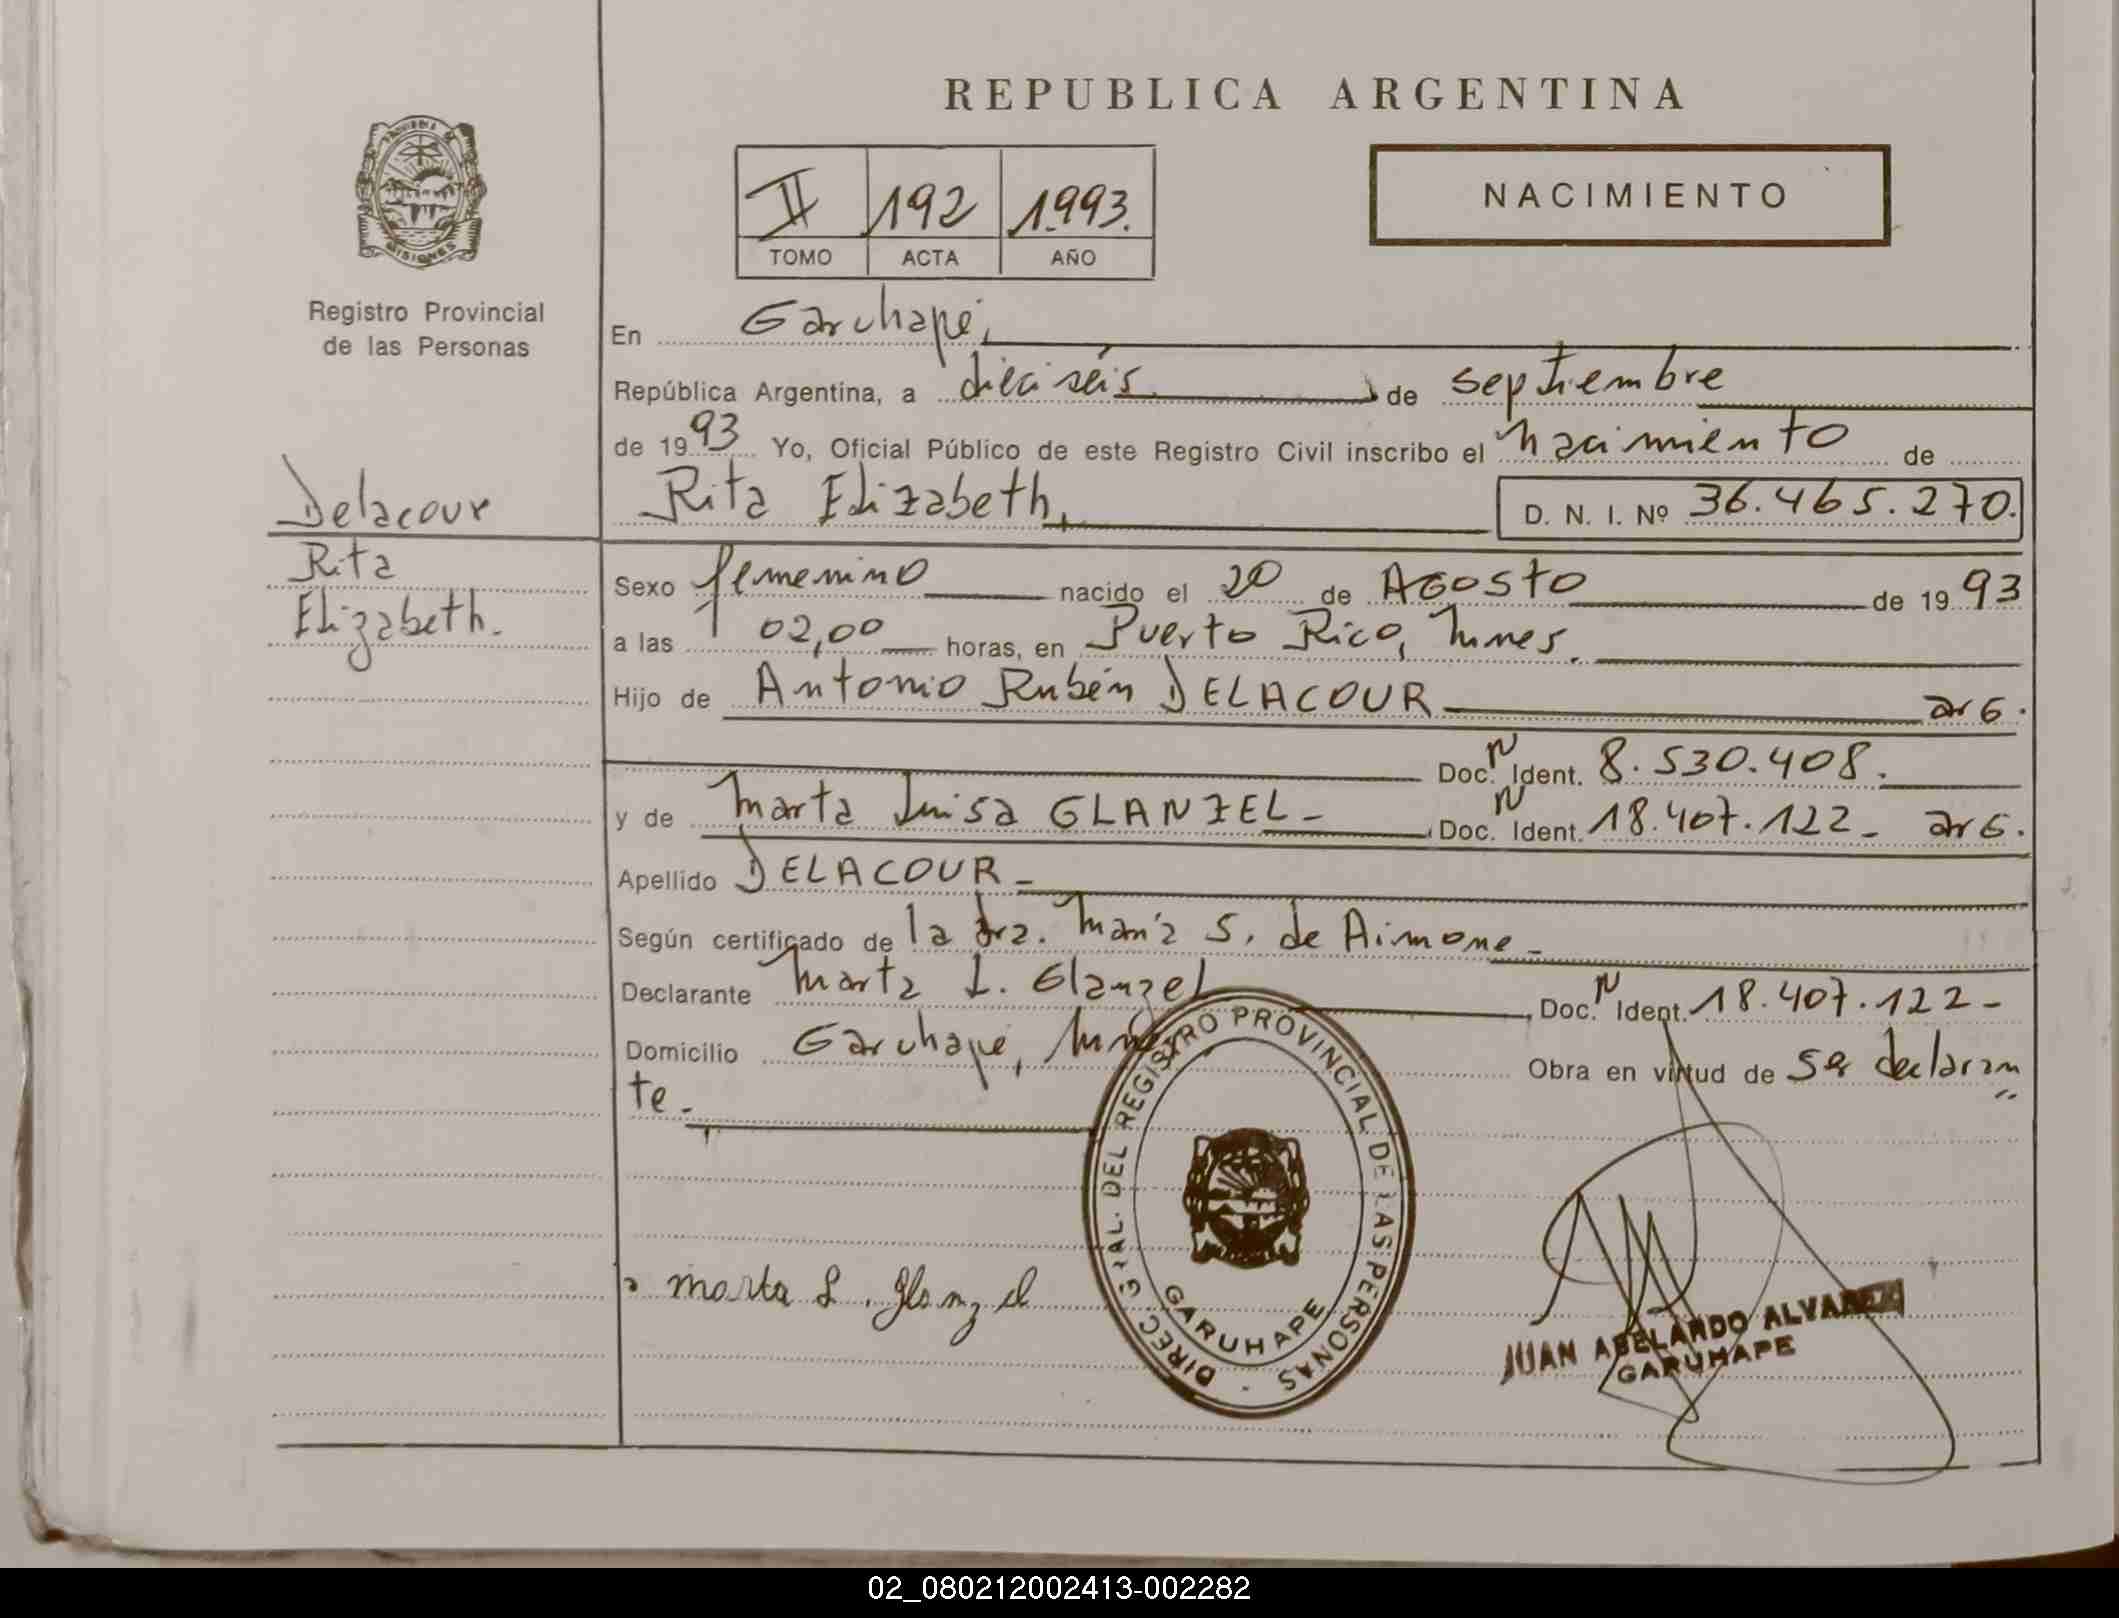 REPUBLICA ARGENTINA
PROVINCIA DE
MISIONES
Registro Provincial
de las Personas
II 192 1993.
TOMO ACTA AÑO
NACIMIENTO
En Garuhapé,
República Argentina, a dieciséis de septiembre
de 1993 Yo, Oficial Público de este Registro Civil inscribo el nacimiento de
Rita Elizabeth, D. N. I. Nº 36.465.270.
Delacour
Rita
Elizabeth.
Sexo femenino nacido el 20 de AGOSTO de 1993
a las 02,00 horas, en Puerto Rico, Mnes.
Hijo de Antonio Rubén DELACOUR arG.
Doc. N Ident. 8.530.408.
y de Marta Luisa GLANZEL- Doc. N Ident. 18.407.122- arG.
Apellido DELACOUR-
Según certificado de la dra. María S. de Aimone-
Declarante Marta L. Glanzel Doc. N Ident. 18.407.122-
Domicilio Garuhapé, Mnes Obra en virtud de ser declaran
te-
DIREC. GRAL. DEL REGISTRO PROVINCIAL DE LAS PERSONAS -
GARUHAPE
Marta L. Glanzel
JUAN ABELARDO ALVAREZ
GARUHAPE
02_080212002413-002282